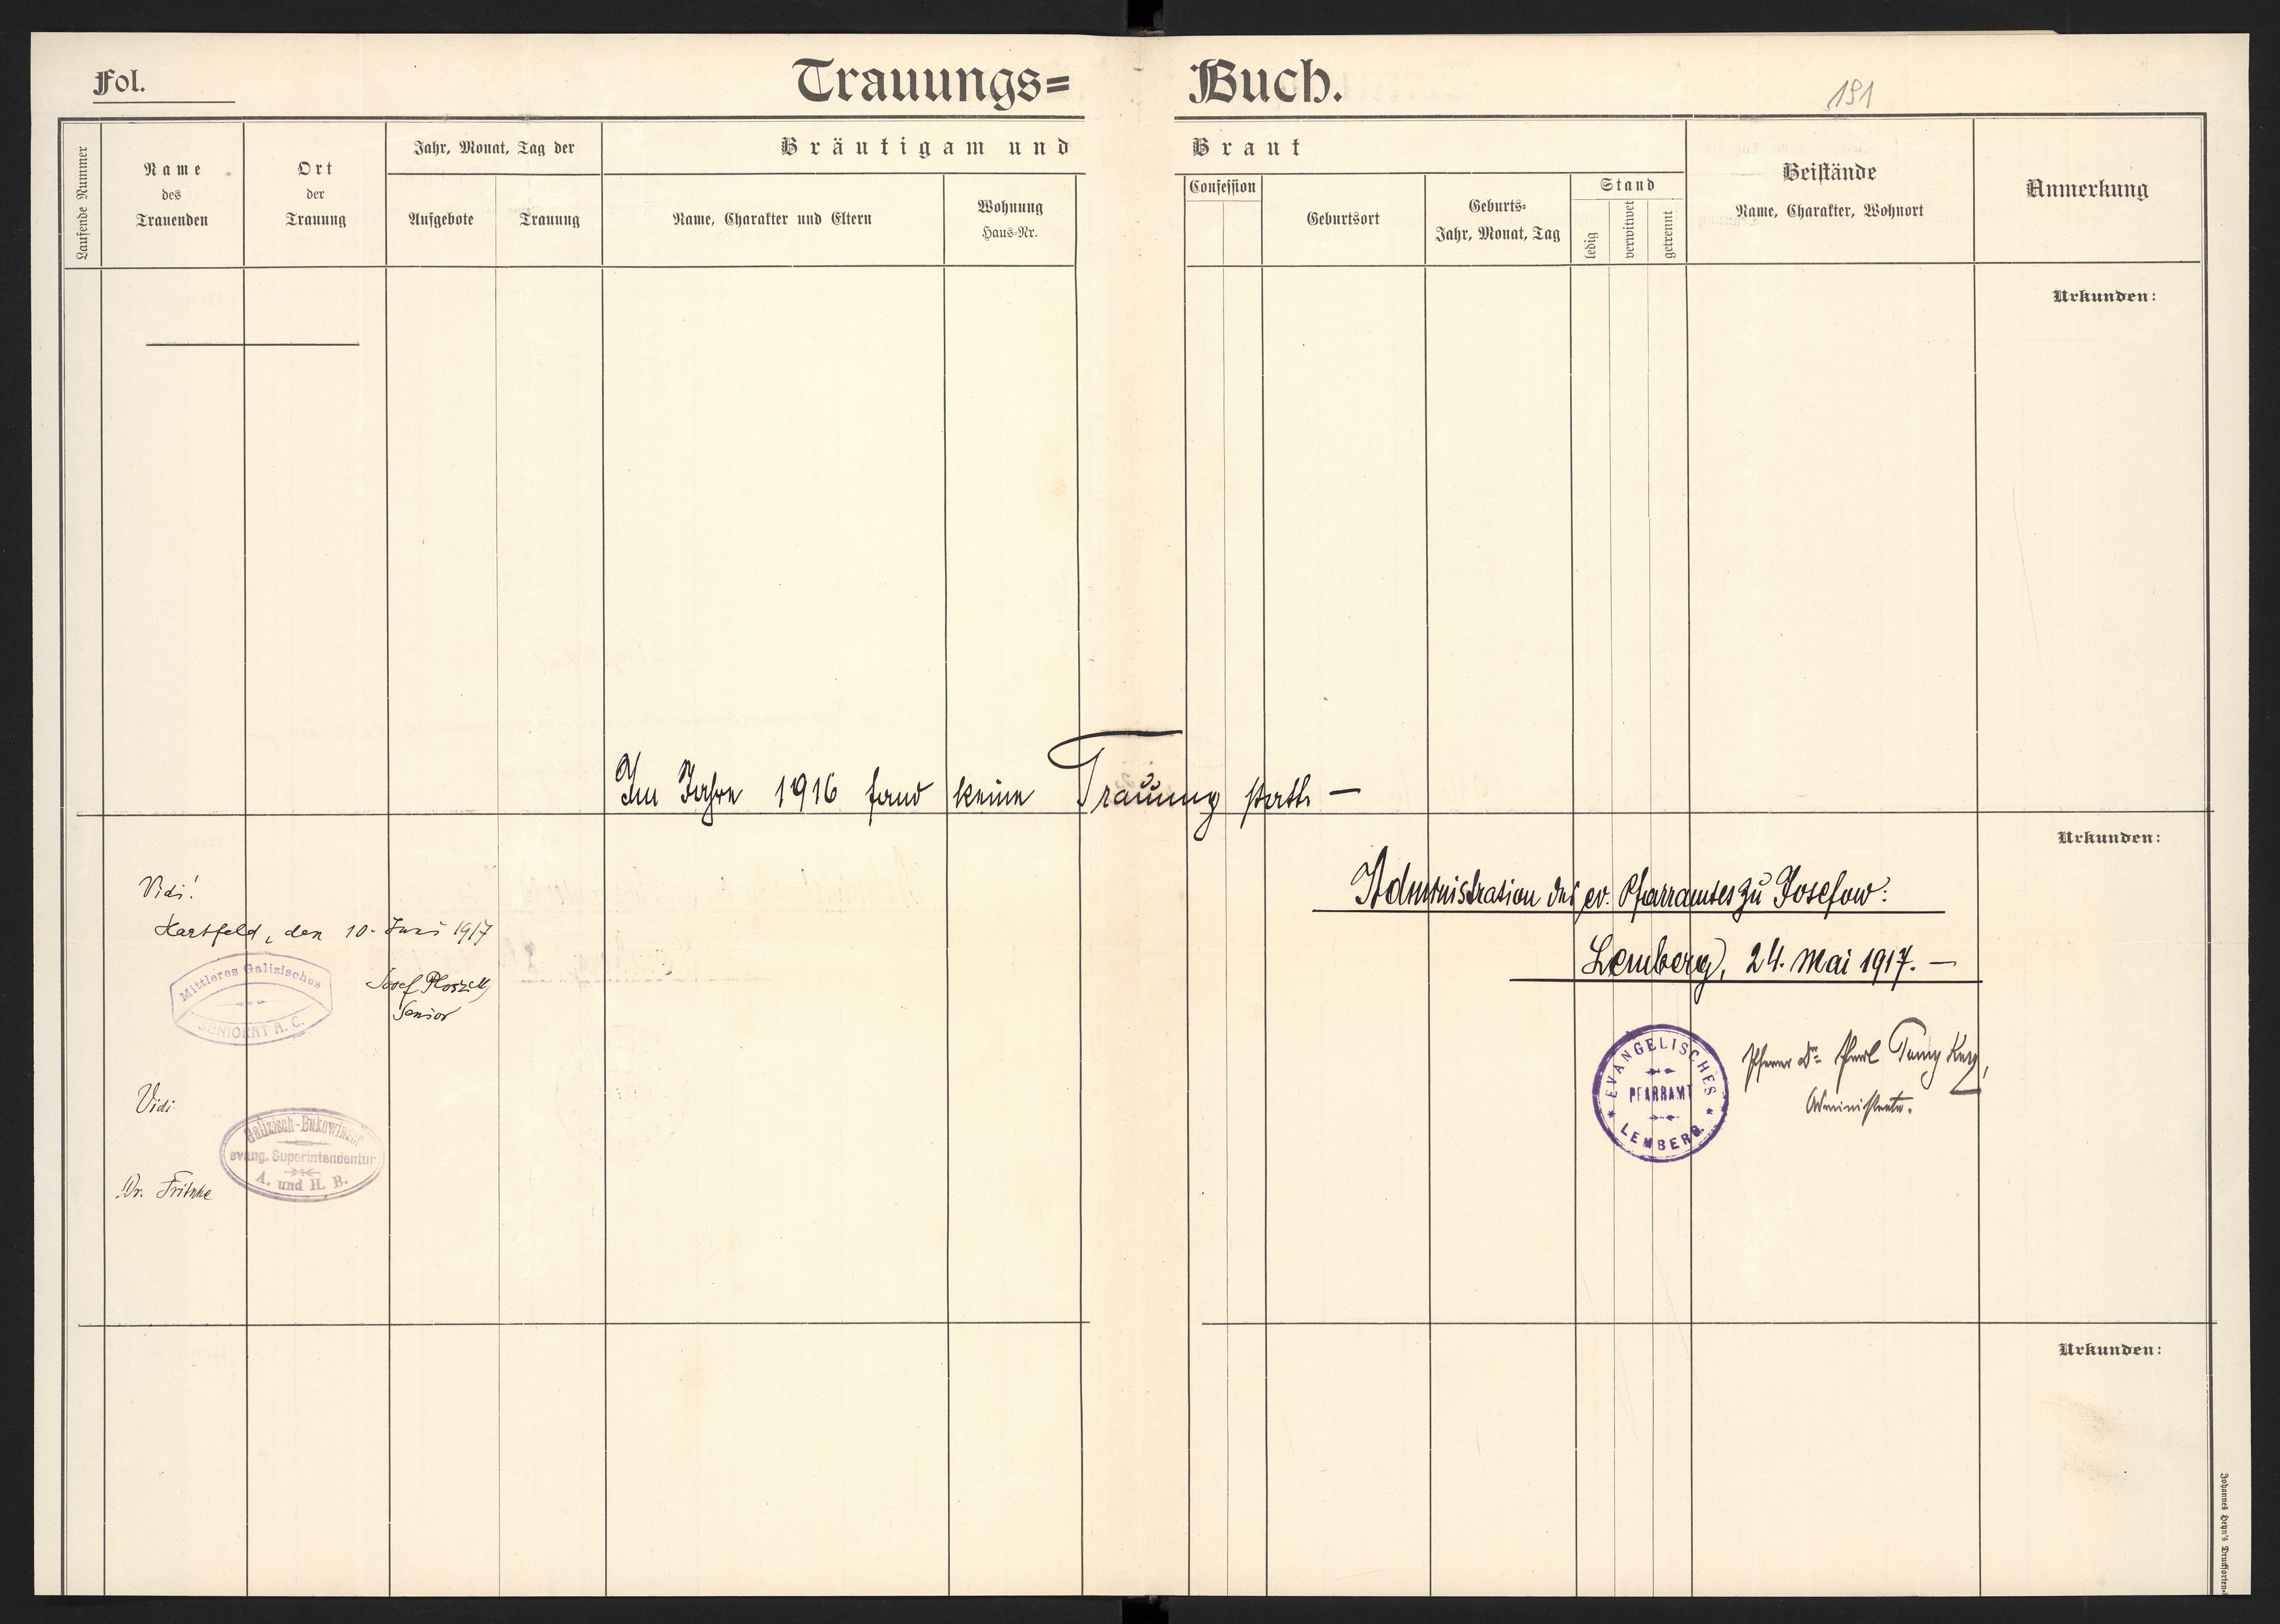 Fol.
Trauungs= Buch.
191
Laufende Nummer
Name
des
Trauenden
Ort
der
Trauung
Jahr, Monat, Tag der
Aufgebote
Trauung
Bräutigam und Braut
Name, Charakter und Eltern
Wohnung
Haus-Nr.
Confession
Geburtsort
Geburts-
Jahr, Monat, Tag
Stand
ledig
verwitwet
getrennt
Beistände
Name, Charakter, Wohnort
Anmerkung
Urkunden:
Im Jahre 1916 fand keine Trauung statt. —
Urkunden:
Administration des ev. Pfarramtes zu Josefow:
Lemberg, 24. Mai 1917. —
EVANGELISCHES
PFARRAMT
LEMBERG.
Pfarrer Dr.
Administrator.
Vidi!
Hartfeld, den 10. Juni 1917
Mittleres Galizisches
SENIORAT A. C.
Josef
Senior
Vidi
Galizisch-Bukowiner
evang. Superintendentur
A. und H. B.
Dr. Fritsche
Urkunden:
Johannes Heyn's Drucksorten-